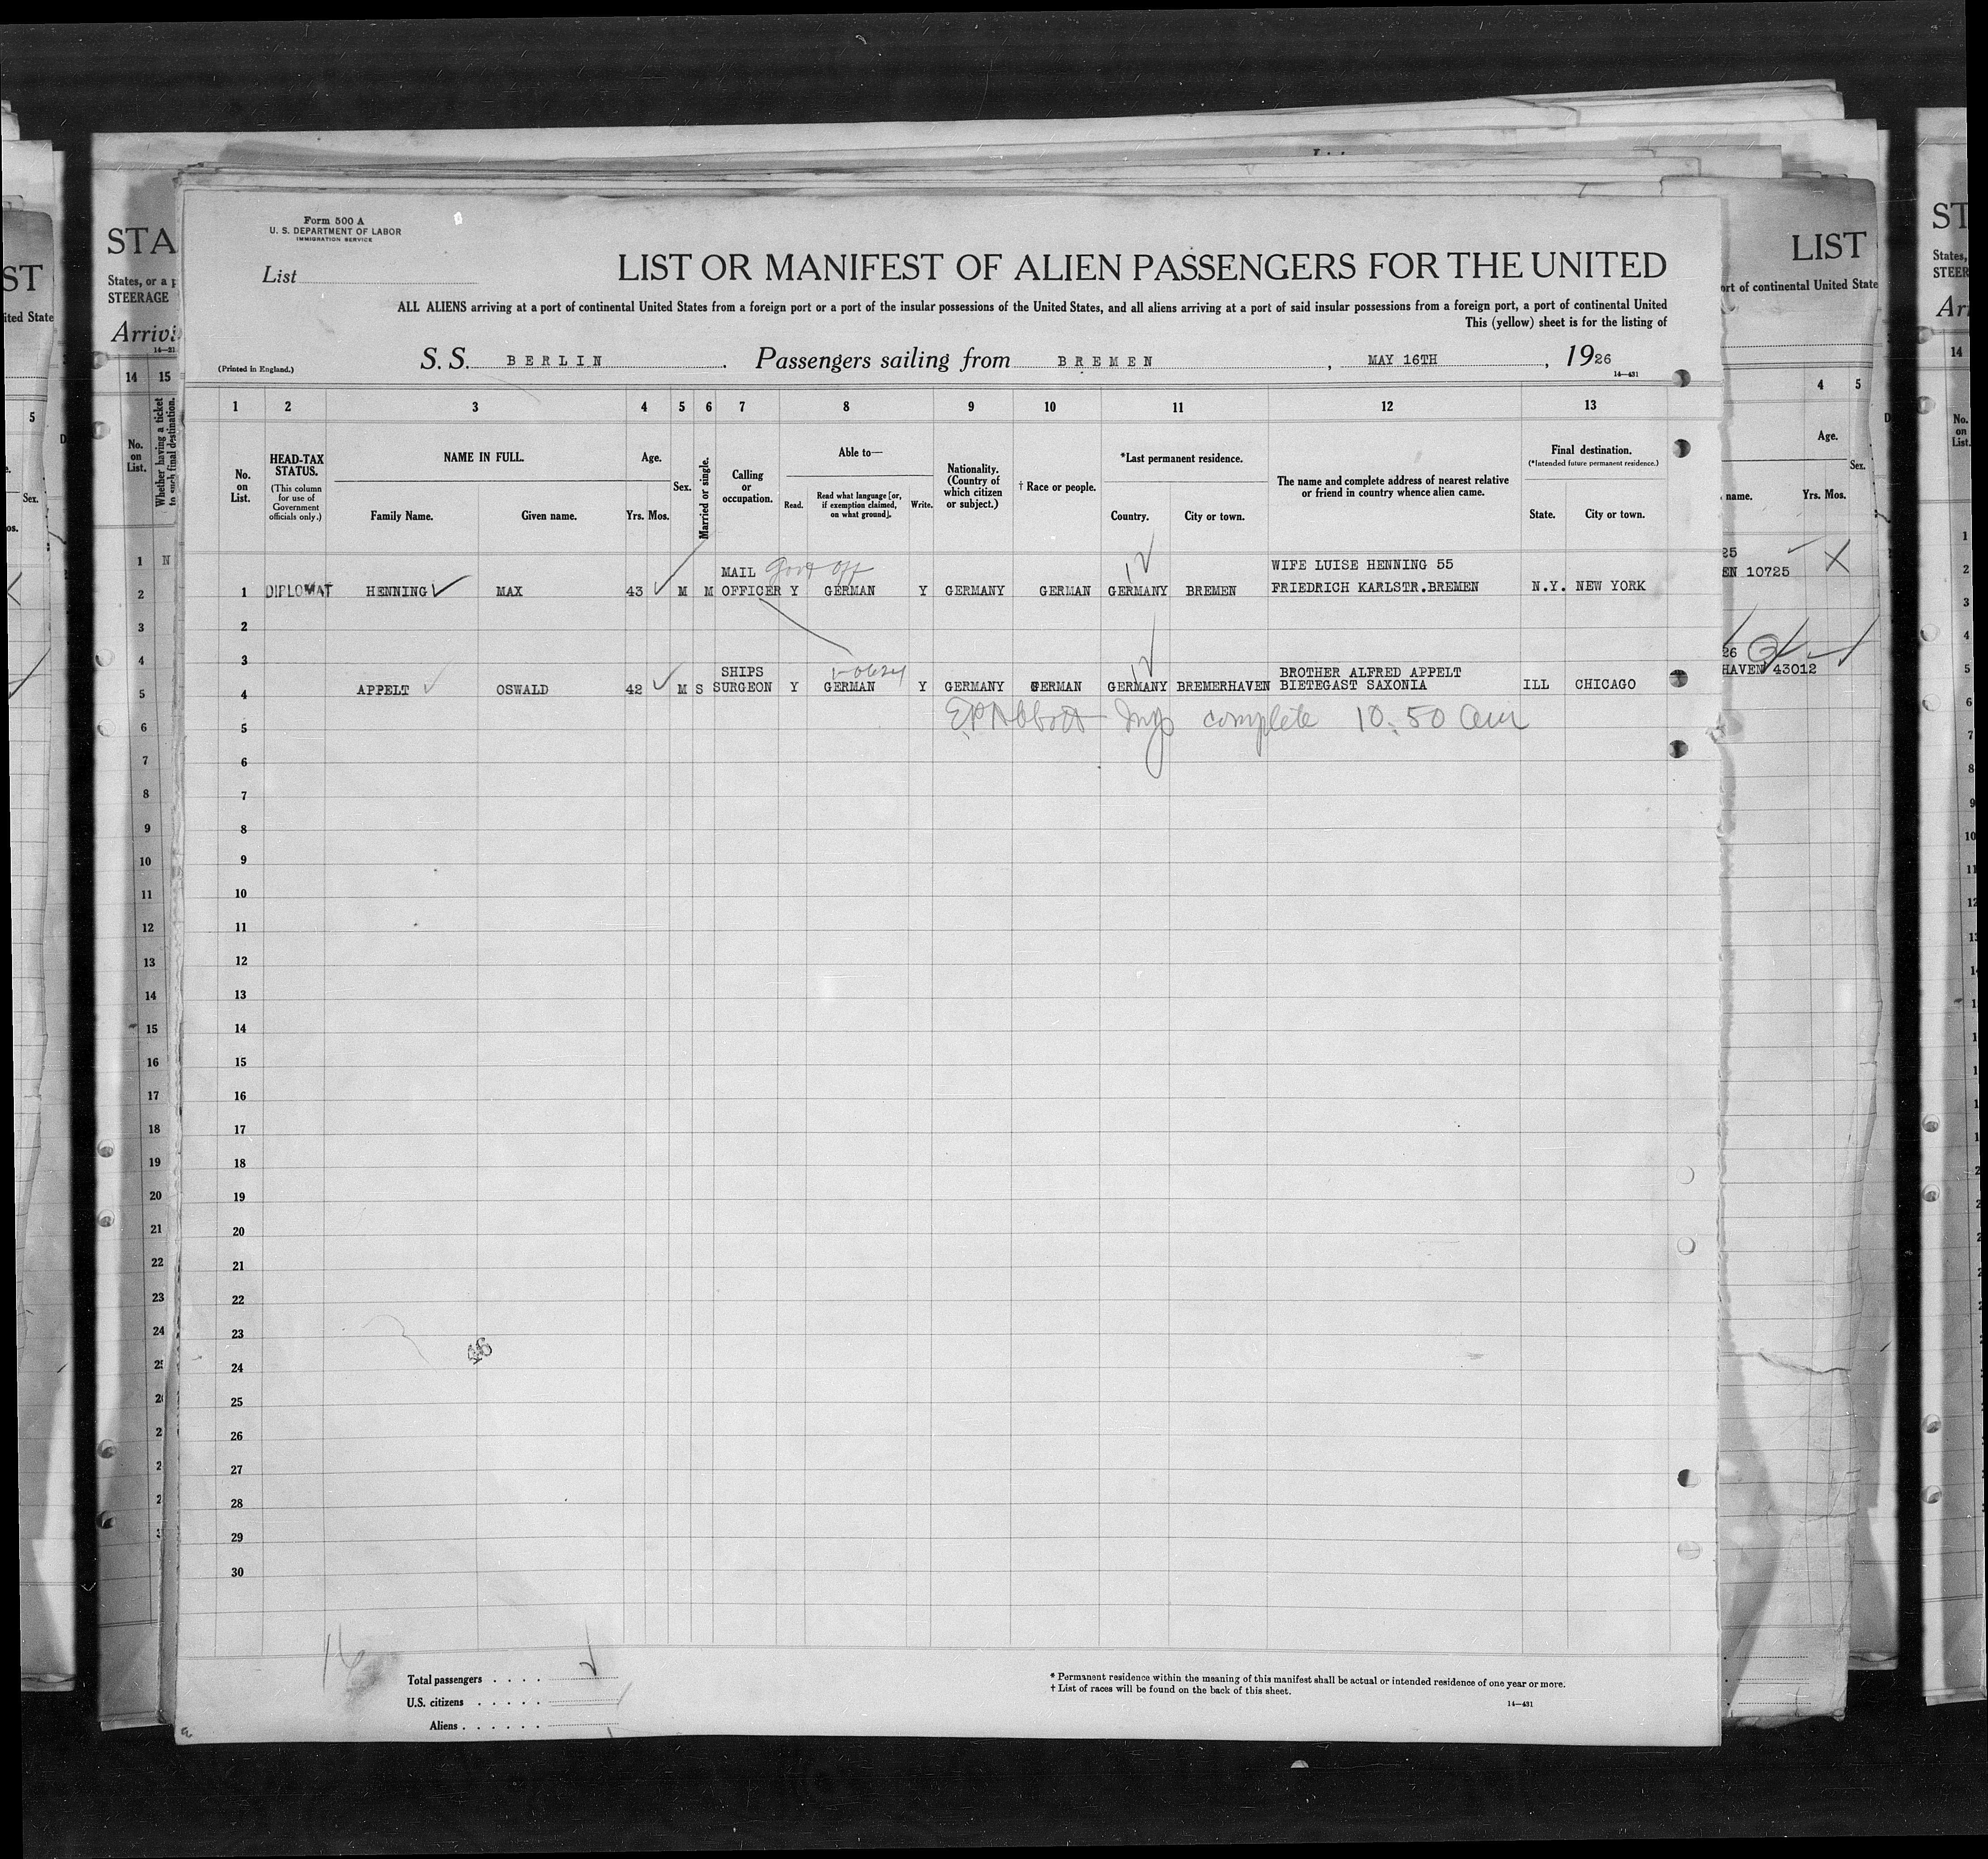 Form 500 A
U. S. DEPARTMENT OF LABOR
IMMIGRATION SERVICE
List
LIST OR MANIFEST OF ALIEN PASSENGERS FOR THE UNITED
ALL ALIENS arriving at a port of continental United States from a foreign port or a port of the insular possessions of the United States, and all aliens arriving at a port of said insular possessions from a foreign port, a port of continental United
This (yellow) sheet is for the listing of
(Printed in England.)
S. S. BERLIN. Passengers sailing from BREMEN, MAY 16TH, 1926
14—431
1 2 3 4 5 6 7 8 9 10 11 12 13
No. on List.
HEAD-TAX STATUS.
(This column for use of Government officials only.)
NAME IN FULL.
Family Name. Given name.
Age.
Yrs. Mos.
Sex.
Married or single.
Calling or occupation.
Able to—
Read. Read what language [or, if exemption claimed, on what ground]. Write.
Nationality. (Country of which citizen or subject.)
† Race or people.
*Last permanent residence.
Country. City or town.
The name and complete address of nearest relative or friend in country whence alien came.
Final destination.
(*Intended future permanent residence.)
State. City or town.
MAIL Govt Off WIFE LUISE HENNING 55
1 DIPLOMAT HENNING MAX 43 M M OFFICER Y GERMAN Y GERMANY GERMAN GERMANY BREMEN FRIEDRICH KARLSTR.BREMEN N.Y. NEW YORK
2
3
SHIPS BROTHER ALFRED APPELT
4 APPELT OSWALD 42 M S SURGEON Y GERMAN Y GERMANY GERMAN GERMANY BREMERHAVEN BIETEGAST SAXONIA ILL CHICAGO
EP Abbott Insp complete 10.50 am
5
6
7
8
9
10
11
12
13
14
15
16
17
18
19
20
21
22
23
24
25
26
27
28
29
30
16
Total passengers . . . .
U.S. citizens . . . . .
Aliens . . . . . .
* Permanent residence within the meaning of this manifest shall be actual or intended residence of one year or more.
† List of races will be found on the back of this sheet.
14—431
STA
States, or a p
STEERAGE
Arrivi
14 15
No. on List.
Whether having a ticket to such final destination.
LIST
ort of continental United State
4 5
Age.
Sex.
name. Yrs. Mos.
EN 10725
HAVEN 43012